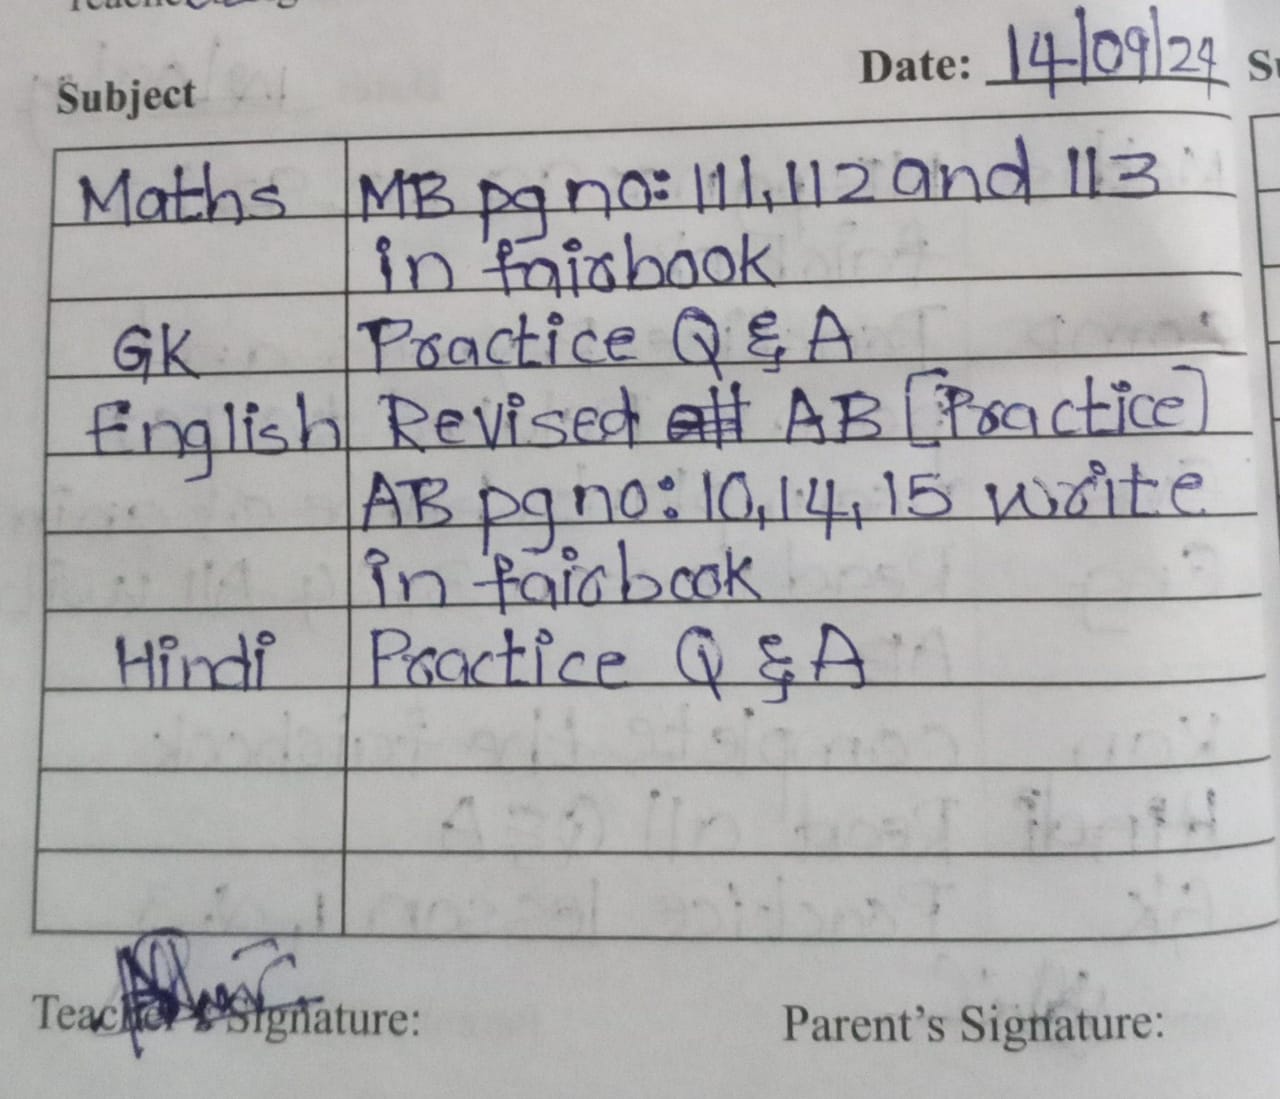 Date: 14/09/24
Subject
Maths MB pg no: 111, 112 and 113
in fairbook
GK Practice Q & A
English Revised AB [Practice]
AB pg no: 10, 14, 15 write
in fairbook
Hindi Practice Q & A
Teacher's Signature:
Parent's Signature: